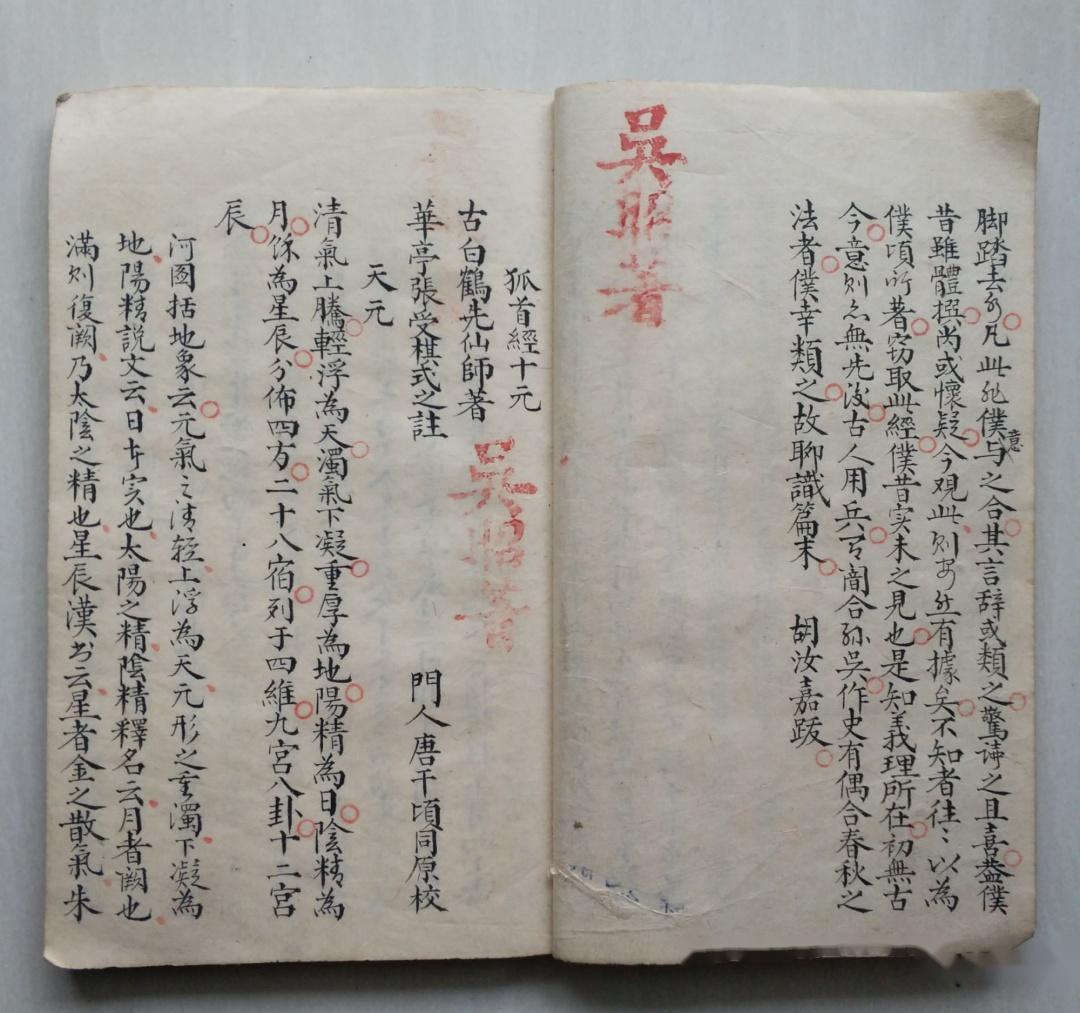 吳昭著
脚踏去可凡此能僕與之合其言辞或類之驚訝之且喜蓋僕
意
昔雖體撰尚或懷疑今观此则安所有據矣不知者往〻以為
僕頃所著窃取此經僕昔实未之見也是知義理所在初無古
今意则亦無先後古人用兵有闇合孫吳作史有偶合春秋之
法者僕幸類之故聊識篇末 胡汝嘉跋
狐首經十元
古白鶴先仙師著
吳昭著
華亭張受棋式之註 門人唐千頃同原校
天元
清氣上騰輕浮為天濁氣下凝重厚為地陽精為日陰精為
月馀為星辰分佈四方二十八宿列于四維九宮八卦十二宮
辰
河圖括地象云元氣之清轻上浮為天元形之重濁下凝為
地陽精説文云日本实也太陽之精陰精釋名云月者阙也
滿则復阙乃太陰之精也星辰漢书云星者金之散氣朱